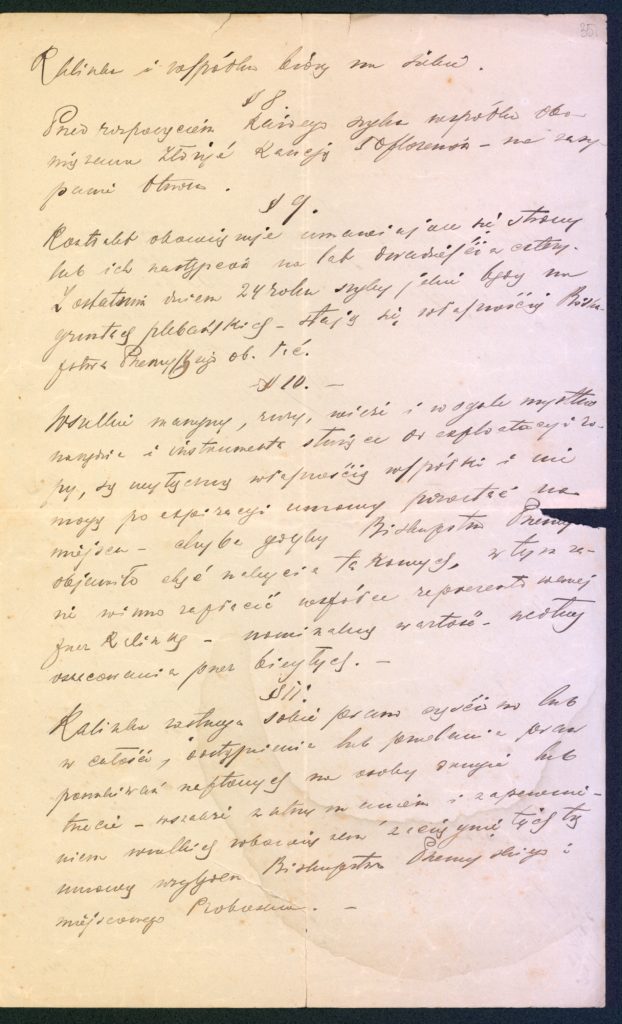 35
Kalinka i wspólka biorą na siebie.
§ 8.
Przed rozpoczęciem każdego szybu wspólka obo-
wiązana złożyć kaucję 50 florenów – na zasy-
panie otworu.
§ 9.
Kontrakt obowiązuje umawiające się strony
lub ich następców na lat dwadzieścia cztery.
Z ostatnim dniem 24 roku szyby jakie będą na
gruntach plebańskich – stają się własnością Bisku-
pstwa Przemyskiego ob. łać.
§ 10. –
Wszelkie maszyny, rury, wieże i w ogóle wszystkie
narzędzia i instrumenta służące do exploatacyi ro-
py, są wyłączną własnością wspólki i nie
mogą po expiracyi umowy pozostać na
miejscu – chyba gdyby Biskupstwo Przemy
objawiło chęć nabycia takowych, w tym ra-
zie winno zapłacić wspólce reprezentowanej
przez Kalinkę – nominalną wartość – według
oszacowania przez biegłych. –
§ 11.
Kalinka zastrzega sobie prawo częściowo lub
w całości, odstąpienia lub przelania praw
poszukiwań naftowych na osoby drugie lub
trzecie – wszakże z utrzymaniem i zapewnie-
niem wszelkich zobowiązań tej
umowy względem Biskupstwa Przemyskiego i
miejscowego Proboszcza. –